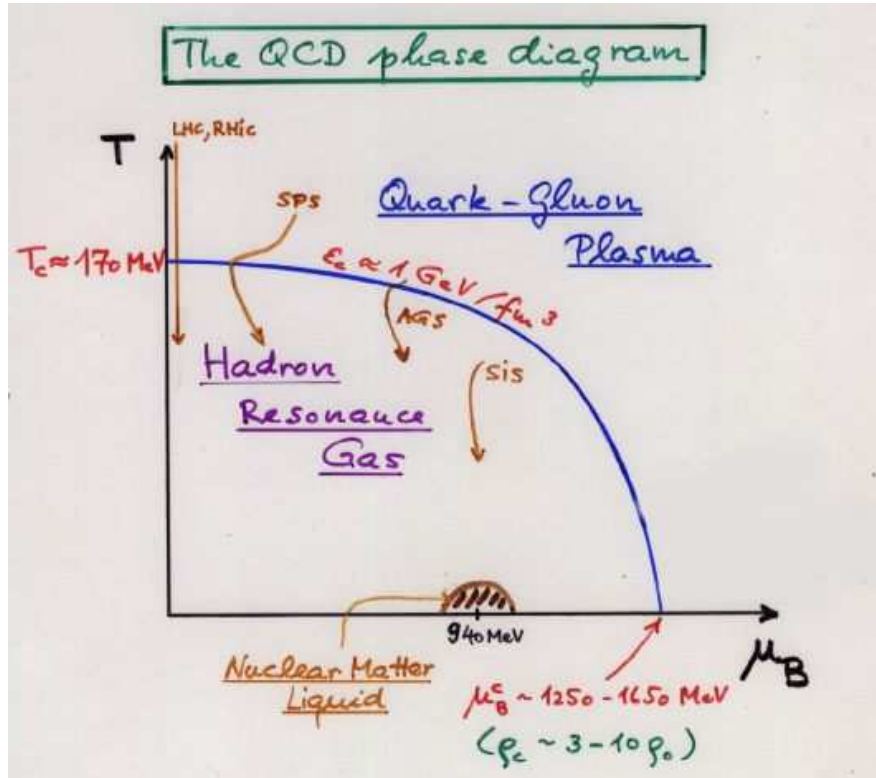 The QCD phase diagram
T
LHC, RHiC
SPS
Quark-Gluon
Plasma
Tc ≈ 170 MeV
εc ≈ 1 GeV/fm3
AGS
Hadron
Resonance
Gas
SiS
940 MeV
μB
Nuclear Matter
Liquid
μBc ~ 1250-1650 MeV
(ρc ~ 3-10 ρ0)